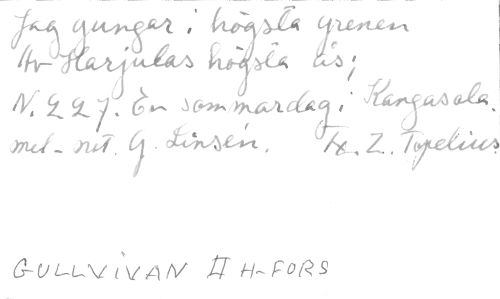 Jag gungar i högsta grenen
Av Harjulas högsta ås;
N. 227. En sommardag i Kangasala.
mel-not. G. Linsén. Tx. Z. Topelius.
GULLVIVAN II H-FORS